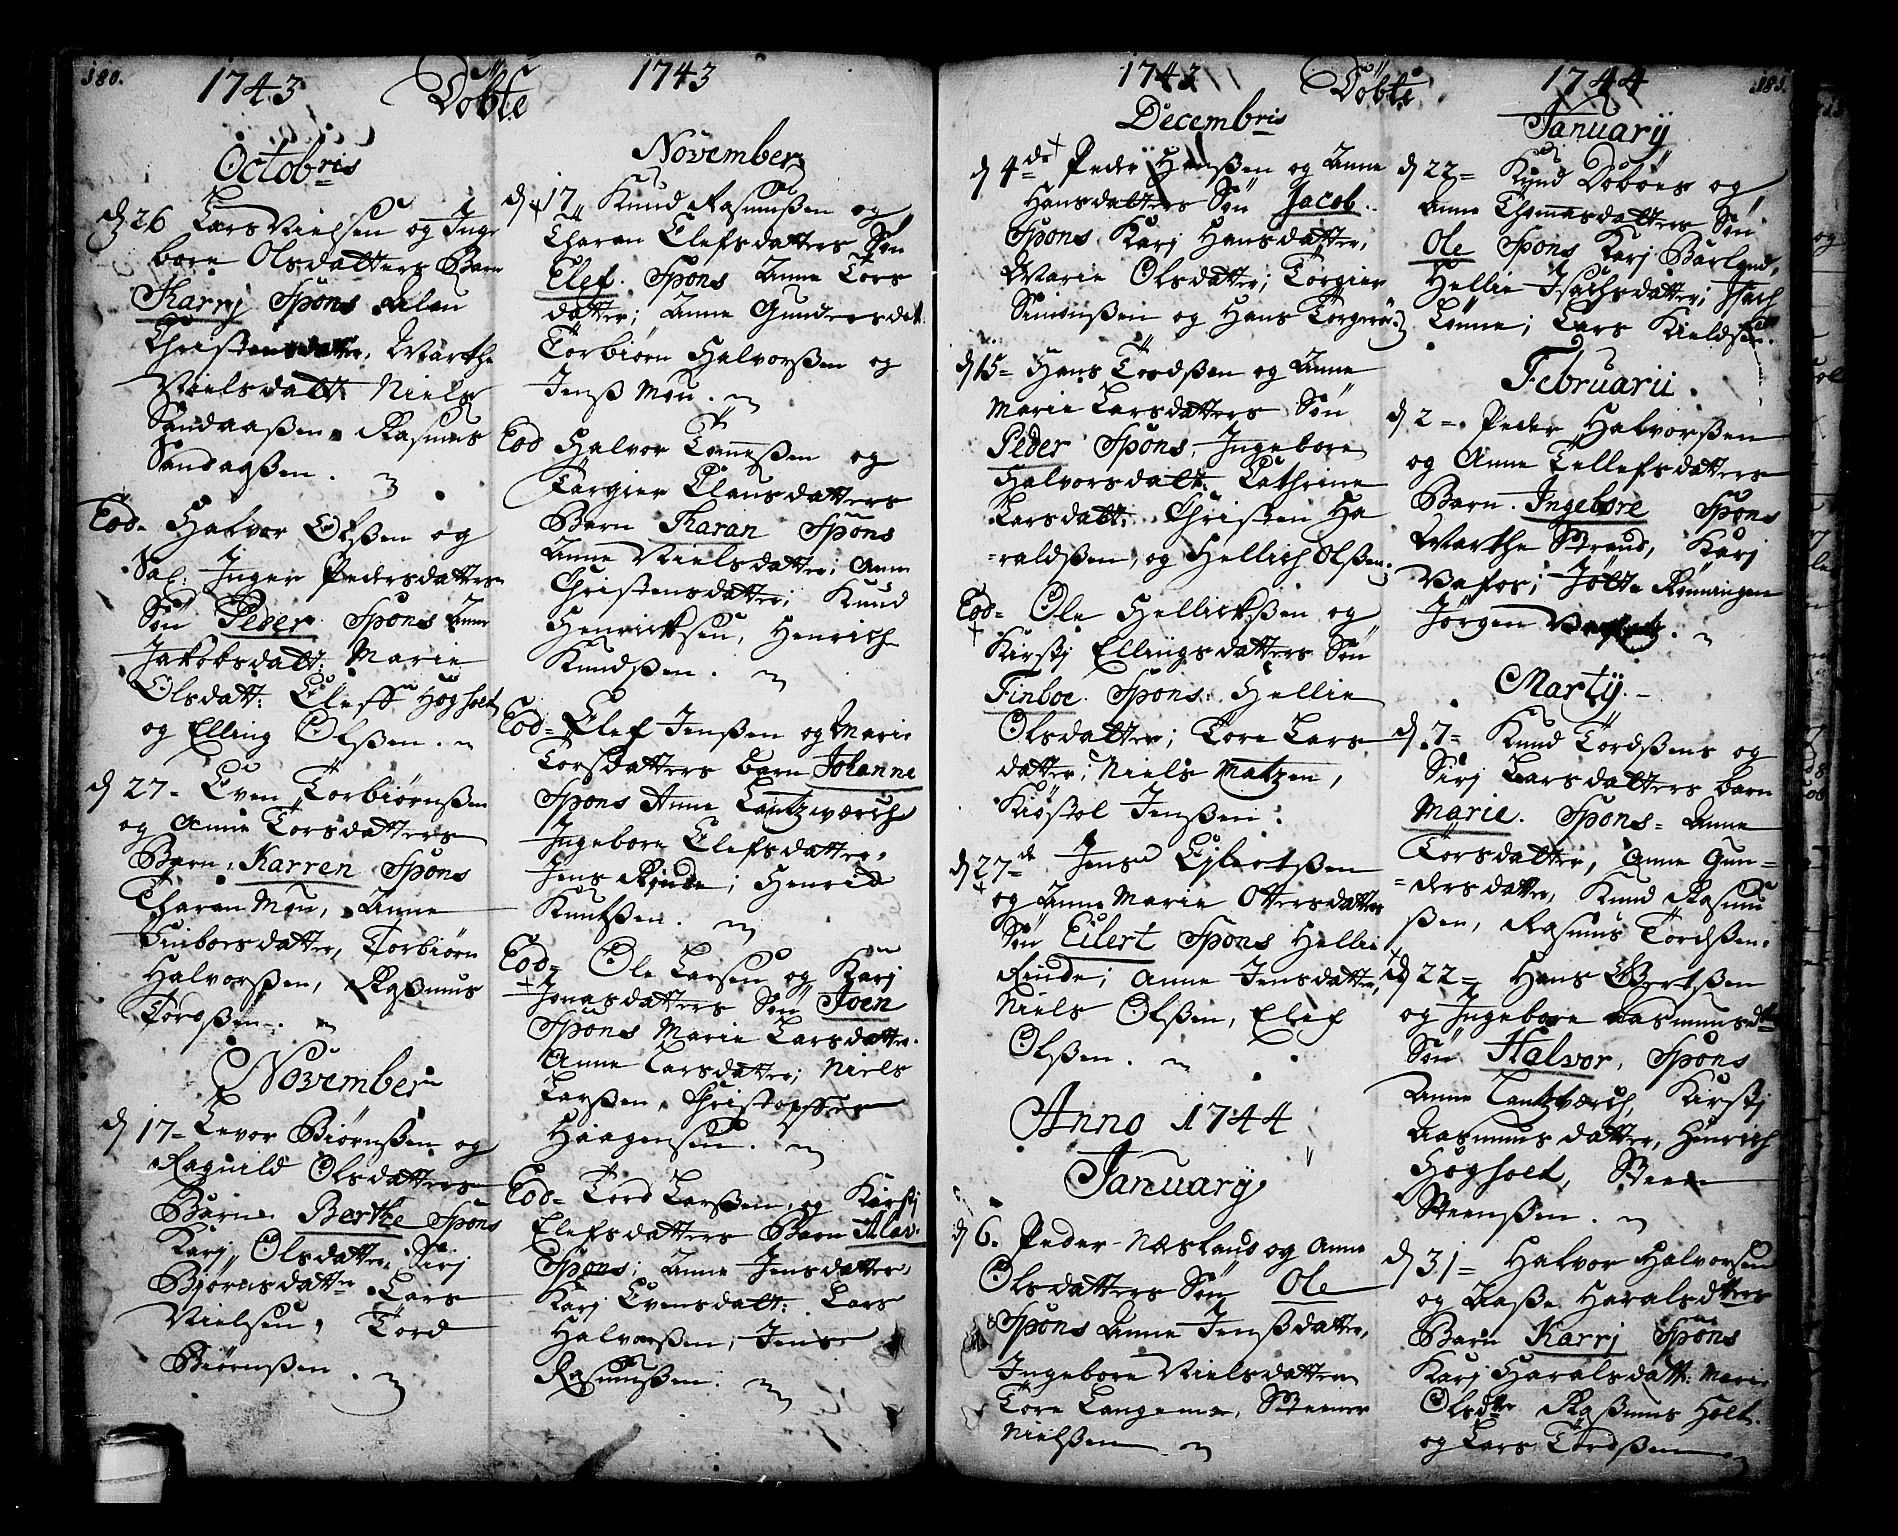 180.
1743
Döbte
1743
Octobris
d 26 Lars Nielsen og Inge
borre Olsdatters Barn
Karrj Spons
Christensdatter, Marthe
Nielsdatt: Niels
Sandaaßen, Rasmus
Sandaaßen.
Eod- Halvor Olsen og
Sal: Inger Pedersdatters
Søn Peder Spons Anne
Jakobsdatt: Marie
Olsdatt: Eleff Hogholt
og Elling Olsen.
d 27- Even Torbiørnßen
og Anne Torsdatters
Barn, Karren Spons
Tharan Mou, Anne
Finboesdatter, Torbiørn
Halvorsßen, Raßmus
Tordßen.
November
d 17- Levor Biørnßen og
Ragnild Olsdatters
Barn Berthe Spons
Karj Olsdatter, Sirj
Bjørnsdatter Lars
Nielsen, Tord
Biørnßen.
November
d 17 Knud Rasmusßen og
Tharan Elefsdatters Søn
Elef. Spons Anne Tors
datter; Anne Gundersdat
Torbiørn Halvorßen og
Jenß Mou.
Eod Halvor Tønneßen og
Torgier Clausdatters
Barn Tharan Spons
Anne Nielsdatter; Anne
Christensdatter; Knud
Henricksen, Henrich
Knudßen.
Eod- Elef Jenßen og Marie
Torsdatters barn Johanne
Spons Anne Lantzwærch
Ingeborre Elefsdatter,
Jens Rinde; Henrich
Knutßen.
Eod= Ole Larsen og Karj
Jonasdatters Søn Joen
Spons Marie Larsdatter.
Anne Larsdatter; Niels
Larßen, Christopffer
Haagensen.
Eod= Tord Larßen, og Kirstj
Elefsdatters Barn Alav.
Spons; Anne Jensdatter,
Karj Evensdatt: Lars
Halvorßen; Jens
Rasmusßen.
1743
Döbte
1744
181.
Decembris
d 4de Peder Hanßen og Anne
Hansdatters Søn Jacob.
Spons Karj Hansdatter,
Marie Olsdatter; Torgier
Simonßen og Hans
d 15= Hans Tordßen og Anne
Marie Larsdatters Søn
Peder Spons, Ingeborre
Halvorsdatt. Cathrine
Larsdatt: Christen Ha
=raldßen, og Hellich Olßen.
Eod= Ole Hellickßen og
Kirstj Ellingsdatters Søn
Finboe. Spons: Hellie
Olsdatter; Tore Lars
datter; Niels Matzen,
Kiøstol Jenßen:
d 27de Jens Eylertßen
og Anne Marie Ottersdatters
Søn Eilert Spons Hellie
Rinde; Anne Jensdatter,
Niels Olßen, Elef
Olßen.
Anno 1744
January
d 6. Peder Næsland og Anne
Olsdatters Søn Ole
Spons Anne Jenßdatter,
Ingeborre Nielsdatter
Tore Langemer, Steiner
Nielßen
Januarij
d 22= Kynd og
Anne Thomasdatters Søn
Ole Spons Karj Barland,
Hellie Isachsdatter; Isach
Lønne; Lars Kieldsen.
Februarii
d 2=. Peder Halvorßen
og Anne Tellefsdatters
Barn. Ingeborre Spons
Marthe Strand, Karj
Vafos; Jølte Rønningen
Jørgen
Martij.-
d 7= Knud Tordßens og
Sirj Larsdatters barn
Marie. Spons= Anne
Torsdatter, Anne Gun=
=dersdatter, Knud Rasmus
ßen, Rasmus Tordßen.
d 22= Hans Gjertßen
og Ingeborre Aasmunsdtr
Søn Halvor, Spons
Anne Lantzværch, Kirstj
Aasmunsdatter, Hinrich
Hogholt, Steen
Steenßen.
d 31= Halvor Halvorsen
og Aaße Haralsdtters
Barn Karrj Spons
Karj Haralsdatt: Marie
Olsdtter Raßmus Holt.
og Lars Tordßen